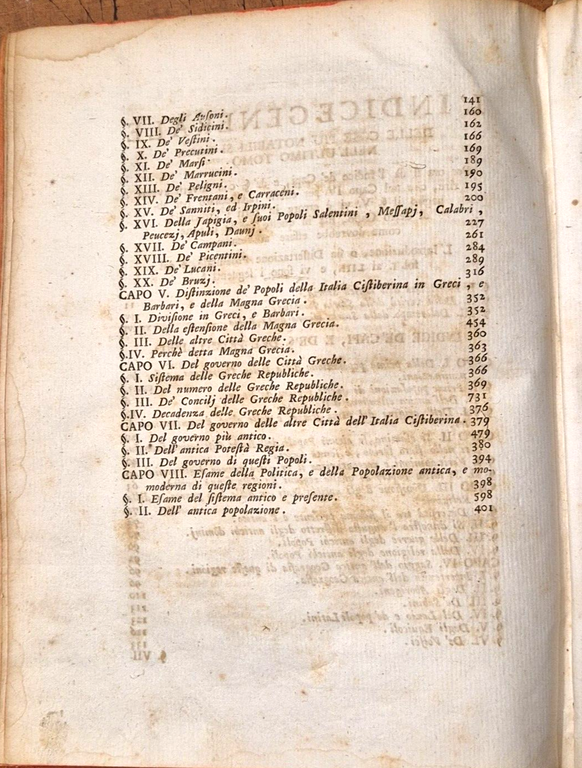 §. VII. Degli Ausoni. 141
§. VIII. De' Sidicini. 160
§. IX. De' Vestini. 162
§. X. De' Precutini. 166
§. XI. De' Marsi. 169
§. XII. De' Marrucini. 189
§. XIII. De' Peligni. 190
§. XIV. De' Frentani, e Carraceni. 195
§. XV. De' Sanniti, ed Irpini. 200
§. XVI. Della Japigia, e suoi Popoli Salentini, Messapj, Calabri,
Peucezj, Apuli, Daunj. 227
§. XVII. De' Campani. 261
§. XVIII. De' Picentini. 284
§. XIX. De' Lucani. 289
§. XX. De' Bruzj. 316
CAPO V. Distinzione de' Popoli della Italia Cistiberina in Greci, e
Barbari, e della Magna Grecia. 352
§. I. Divisione in Greci, e Barbari. 352
§. II. Della estensione della Magna Grecia. 454
§. III. Delle altre Città Greche. 360
§.IV. Perchè detta Magna Grecia. 363
CAPO VI. Del governo delle Città Greche. 366
§. I. Sistema delle Greche Republiche. 366
§. II. Del numero delle Greche Republiche. 369
§. III. De' Concilj delle Greche Republiche. 731
§.IV. Decadenza delle Greche Republiche. 376
CAPO VII. Del governo delle altre Città dell' Italia Cistiberina. 379
§. I. Del governo più antico. 479
§. II. Dell'antica Potestà Regia. 380
§. III. Del governo di questi Popoli. 394
CAPO VIII. Esame della Politica, e della Popolazione antica, e mo-
moderna di queste regioni. 398
§. I. Esame del sistema antico e presente. 598
§. II. Dell' antica popolazione. 401